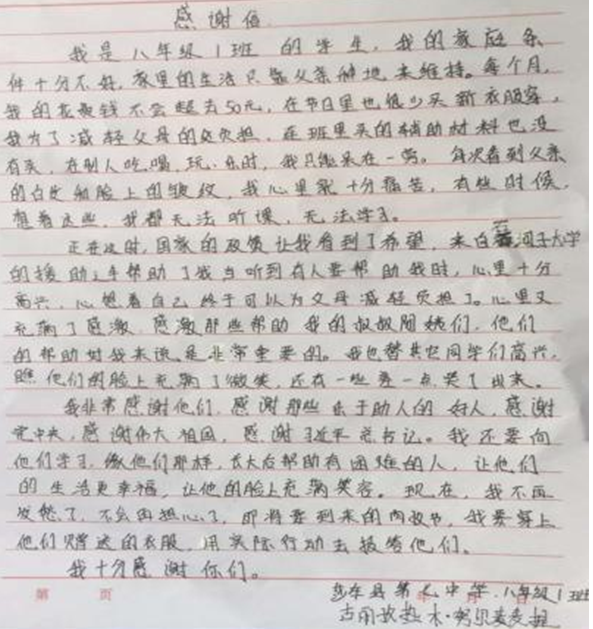 感谢信
我是八年级1班的学生,我的家庭条
件十分不好,家里的生活只靠父亲种地来维持。每个月,
我的花费钱不会超过50元,在节日里也很少买新衣服穿,
我为了减轻父母的负担,在班里买的辅助材料也没
有买,在别人吃、喝、玩、乐时,我只能呆在一旁。每次看到父亲
的白发和脸上的皱纹,我心里就十分痛苦,有些时候,
想着这些,我都无法听课,无法学习。
正在这时,国家的政策让我看到了希望,来自石河子大学
的援助之手帮助了我当听到有人要帮助我时,心里十分
高兴,心想着自己终于可以为父母减轻负担了。心里又
充满了感激,感激那些帮助我的叔叔阿姨们,他们
的帮助对我来说是非常重要的。我也替其它同学们高兴,
瞧他们的脸上充满了微笑,还有一些差一点哭了出来。
我非常感谢他们,感谢那些乐于助人的好人,感谢
党中央,感谢伟大祖国,感谢习近平总书记。我还要向
他们学习,像他们那样,长大后帮助有困难的人,让他们
的生活更幸福,让他的脸上充满笑容。现在,我不再
发愁了,不会再担心了,即将要到来的肉孜节,我要穿上
他们赠送的衣服,用实际行动去报答他们。
我十分感谢你们。
第 页
莎车县第七中学八年级1班
古丽孜热木·努尔麦麦提